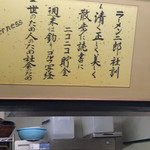 ラーメン二郎社訓
一 清く正しく美しく
散歩に読書に
ニコニコ貯金
週末は釣り ゴルフ 写経
二 世のため人のため社会のため